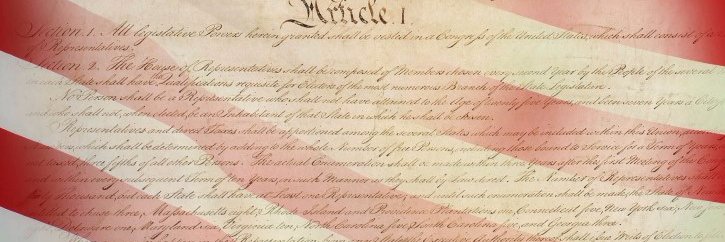 Article. I.
Section. 1. All legislative Powers herein granted shall be vested in a Congress of the United States, which shall consist of a
of Representatives.
Section. 2. The House of Representatives shall be composed of Members chosen every second Year by the People of the several
in each State shall have the Qualifications requisite for Electors of the most numerous Branch of the State Legislature.
No Person shall be a Representative who shall not have attained to the Age of twenty five Years, and been seven Years a Citiz
and who shall not, when elected, be an Inhabitant of that State in which he shall be chosen.
Representatives and direct Taxes shall be apportioned among the several States which may be included within this Union,
which shall be determined by adding to the whole Number of free Persons, including those bound to Service for a Term of Years,
not taxed, three fifths of all other Persons. The actual Enumeration shall be made within three Years after the first Meeting of the Con
and within every subsequent Term of ten Years, in such Manner as they shall by Law direct. The Number of Representatives shall
thirty Thousand, but each State shall have at Least one Representative; and until such enumeration shall be made, the State of New
entitled to chuse three, Massachusetts eight, Rhode Island and Providence Plantations one, Connecticut five, New York six, New Jersey
Delaware one, Maryland six, Virginia ten, North Carolina five, South Carolina five, and Georgia three.